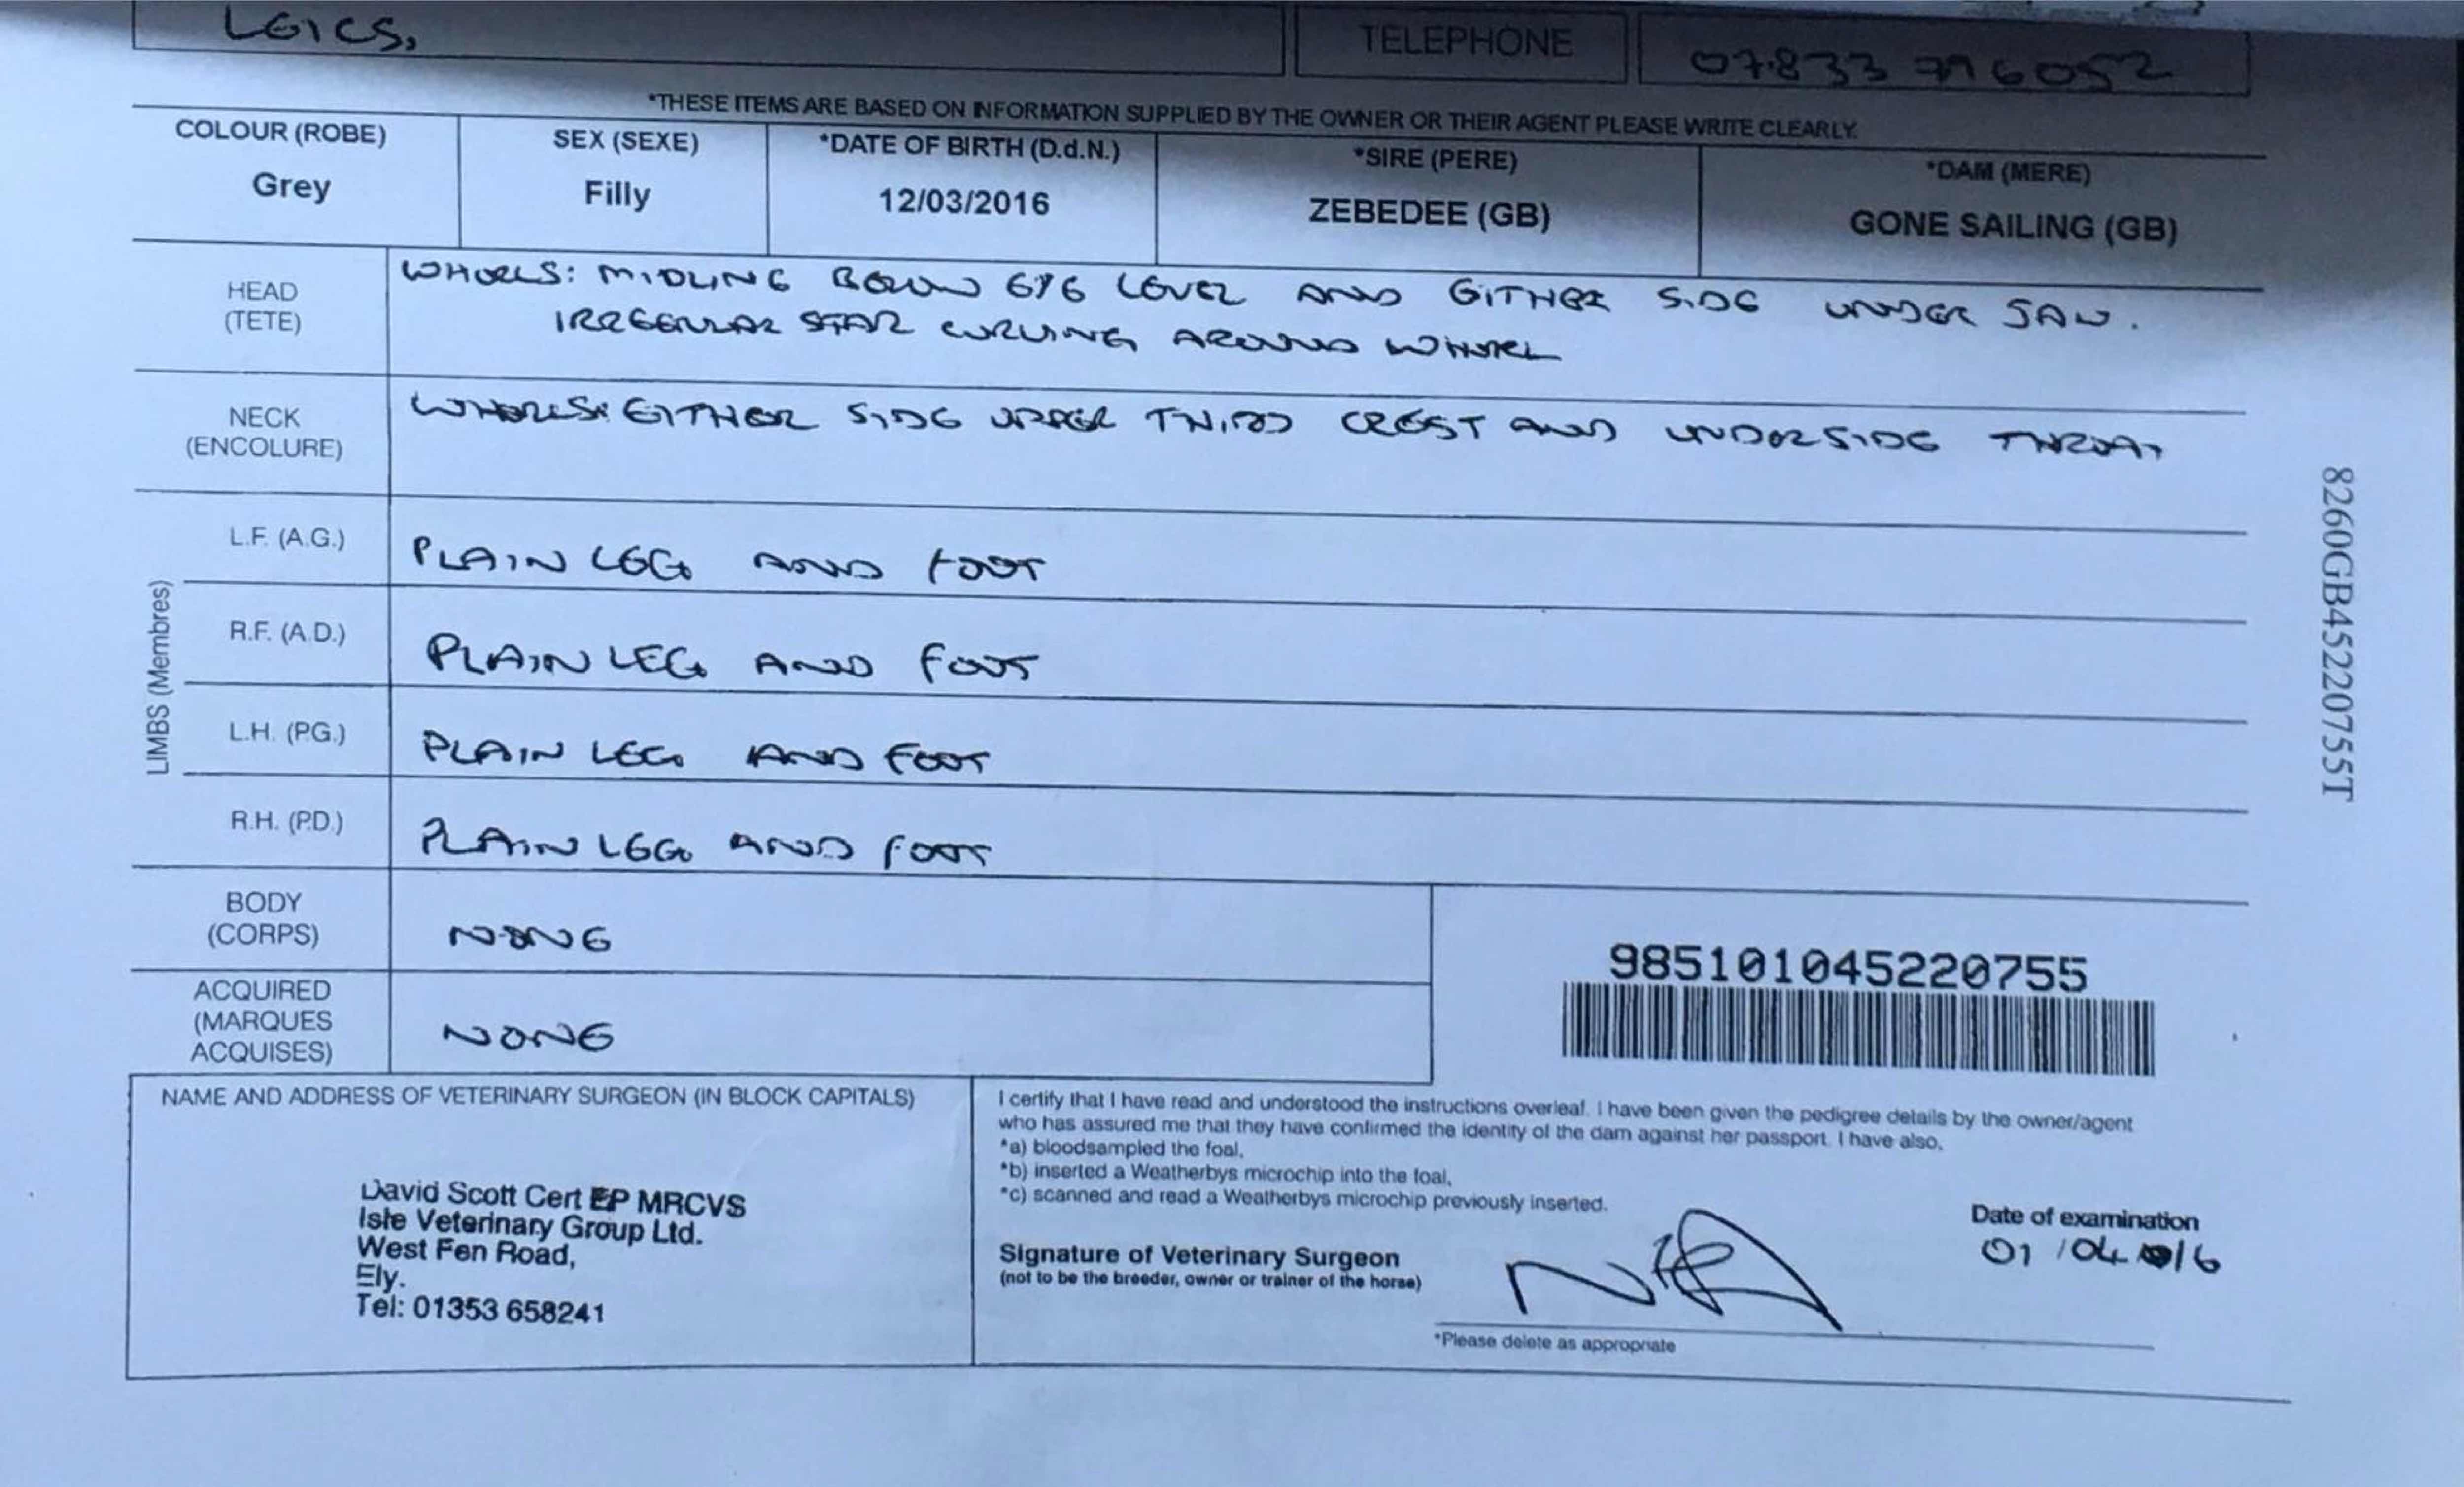 LEICS,
TELEPHONE
07833 716052
*THESE ITEMS ARE BASED ON INFORMATION SUPPLIED BY THE OWNER OR THEIR AGENT PLEASE WRITE CLEARLY.
COLOUR (ROBE)
Grey
SEX (SEXE)
Filly
*DATE OF BIRTH (D.d.N.)
12/03/2016
*SIRE (PERE)
ZEBEDEE (GB)
*DAM (MERE)
GONE SAILING (GB)
HEAD
(TETE)
WHORLS: MIDLINE BELOW EYE LEVEL AND EITHER SIDE UNDER JAW.
IRREGULAR STAR CURLING AROUND WHORL
NECK
(ENCOLURE)
WHORLS: EITHER SIDE UPPER THIRD CREST AND UNDERSIDE THROAT
LIMBS (Membres)
L.F. (A.G.)
PLAIN LEG AND FOOT
R.F. (A.D.)
PLAIN LEG AND FOOT
L.H. (P.G.)
PLAIN LEG AND FOOT
R.H. (P.D.)
PLAIN LEG AND FOOT
8260GB45220755T
BODY
(CORPS)
NONE
ACQUIRED
(MARQUES
ACQUISES)
NONE
985101045220755
NAME AND ADDRESS OF VETERINARY SURGEON (IN BLOCK CAPITALS)
David Scott Cert EP MRCVS
Isle Veterinary Group Ltd.
West Fen Road,
Ely.
Tel: 01353 658241
I certify that I have read and understood the instructions overleaf. I have been given the pedigree details by the owner/agent
who has assured me that they have confirmed the identity of the dam against her passport. I have also,
*a) bloodsampled the foal,
*b) inserted a Weatherbys microchip into the foal,
*c) scanned and read a Weatherbys microchip previously inserted.
Signature of Veterinary Surgeon
(not to be the breeder, owner or trainer of the horse)
Date of examination
01/04/16
*Please delete as appropriate